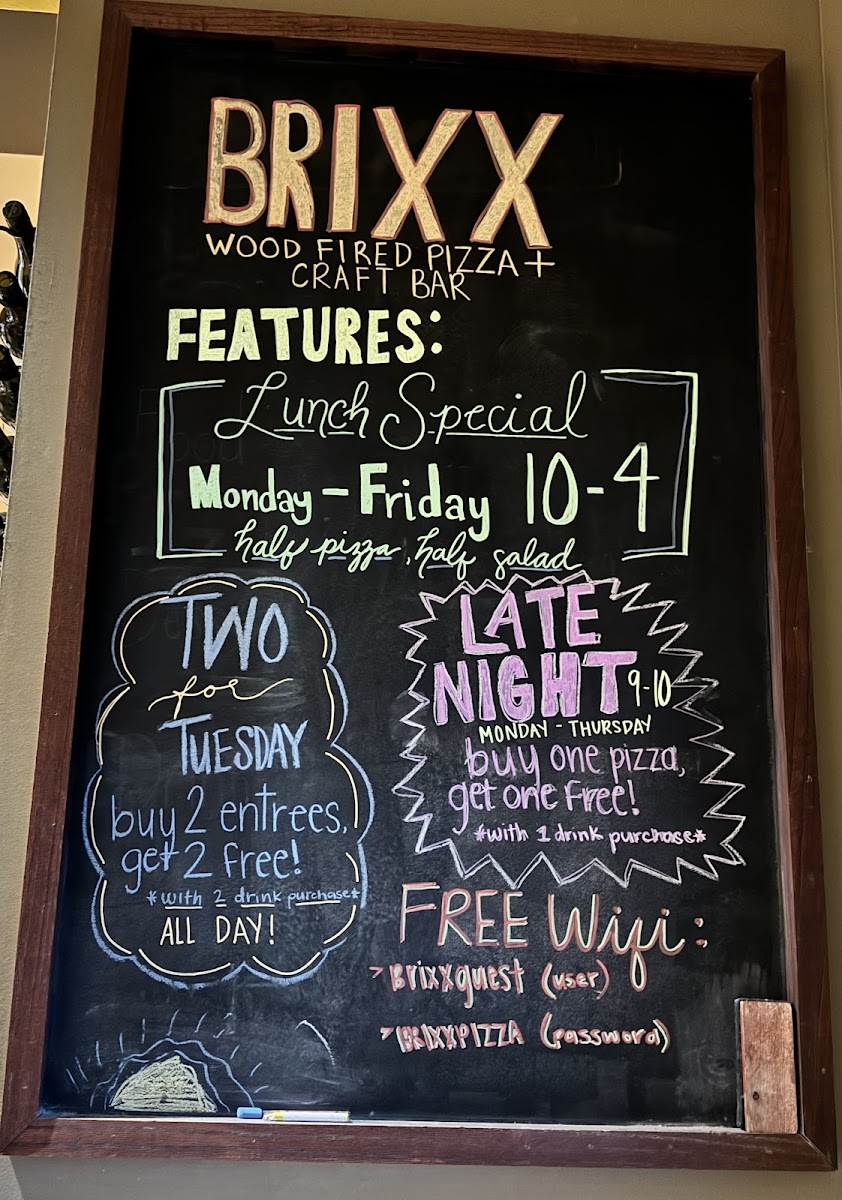 BRIXX
WOOD FIRED PIZZA +
CRAFT BAR
FEATURES:
Lunch Special
Monday - Friday 10-4
half pizza, half salad
TWO
for
TUESDAY
buy 2 entrees,
get 2 free!
*with 2 drink purchase*
ALL DAY!
LATE
NIGHT 9-10
MONDAY - THURSDAY
buy one pizza,
get one free!
*with 1 drink purchase*
FREE Wifi:
>Brixxguest (user)
>BRIXXPIZZA (password)